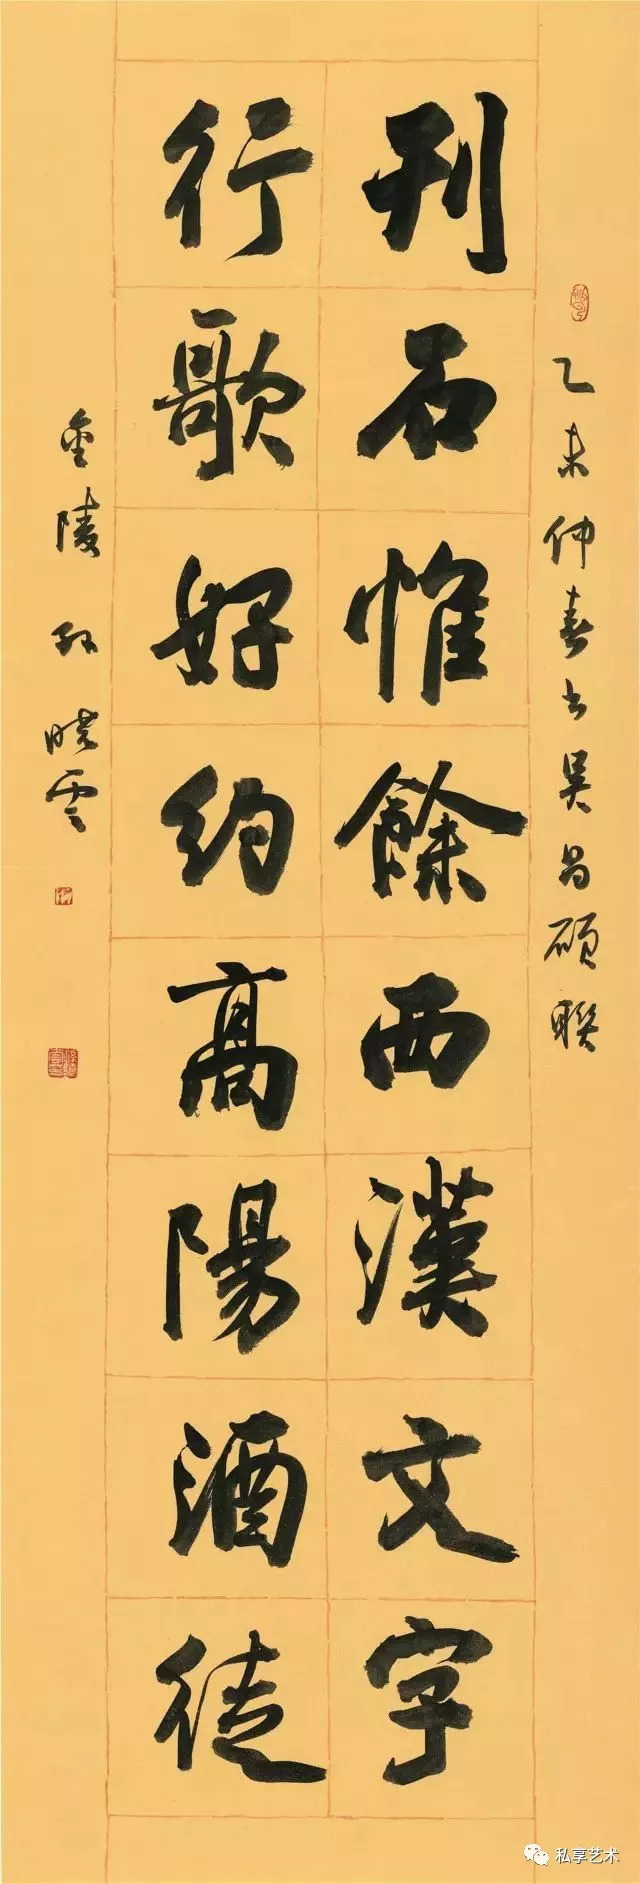 乙未仲春书吴昌硕联
刊石惟餘西漢文字
行歌好約高陽酒徒
金陵孙晓雲
私享艺术